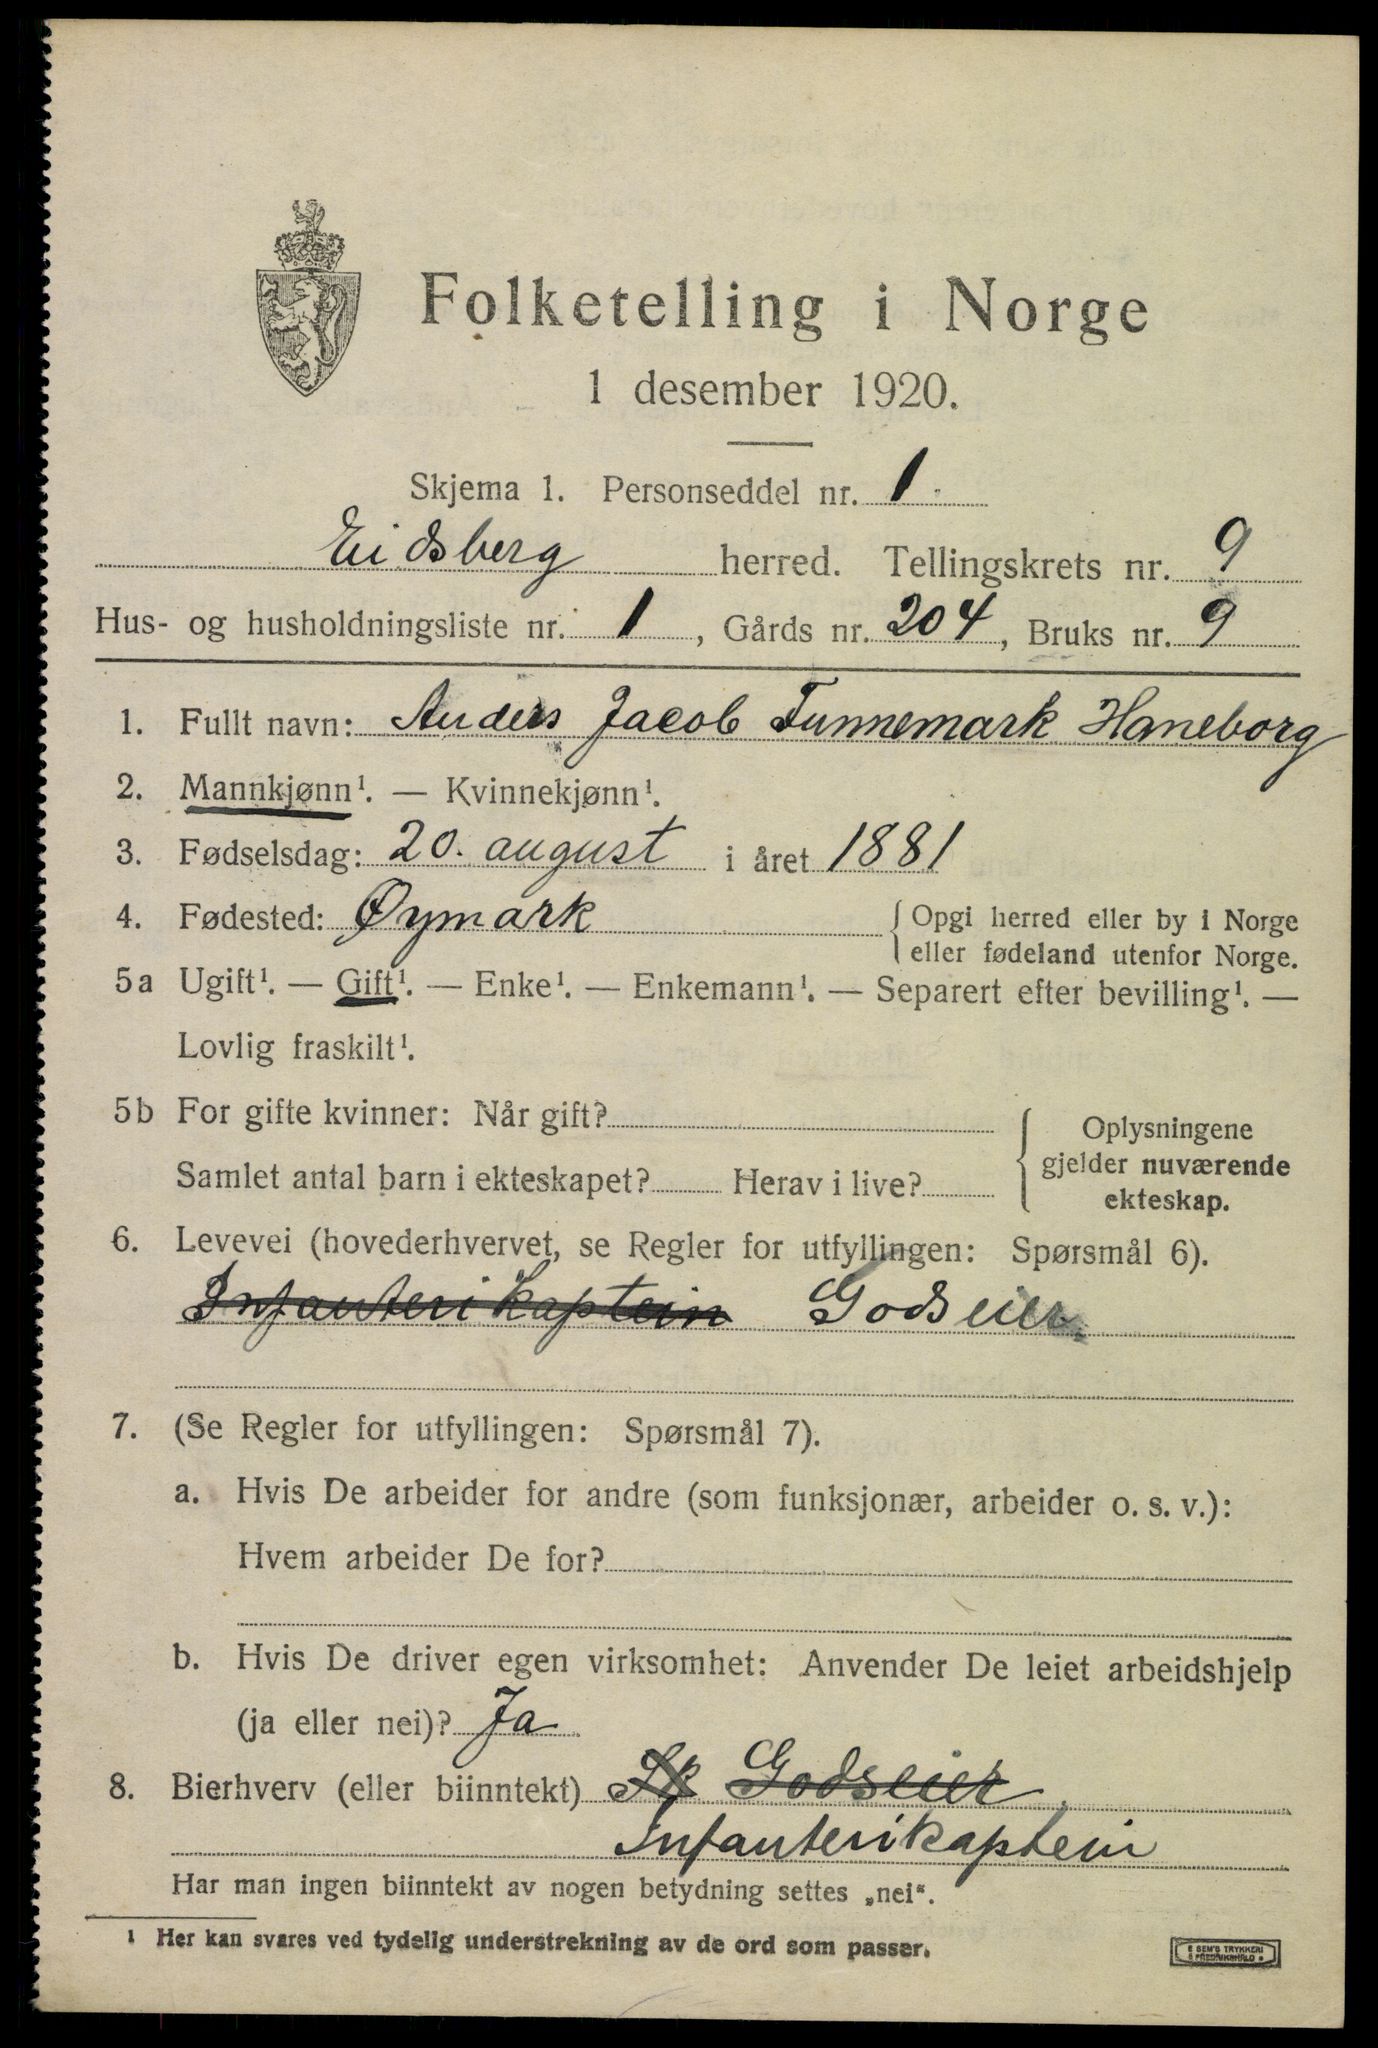 Folketelling i Norge
1 desember 1920.
Skjema 1. Personseddel nr. 1
Eidsberg herred. Tellingskrets nr. 9
Hus- og husholdningsliste nr. 1, Gårds nr. 204, Bruks nr. 9
1. Fullt navn: Anders Jacob Tunnemark Haneborg
2. Mannkjønn¹. — Kvinnekjønn¹.
3. Fødselsdag: 20. august i året 1881
4. Fødested: Øymark { Opgi herred eller by i Norge
eller fødeland utenfor Norge.
5a Ugift¹. — Gift¹. — Enke¹. — Enkemann¹. — Separert efter bevilling¹. —
Lovlig fraskilt¹.
5b For gifte kvinner: Når gift?
Samlet antal barn i ekteskapet? Herav i live?
{ Oplysningene
gjelder nuværende
ekteskap.
6. Levevei (hovederhvervet, se Regler for utfyllingen: Spørsmål 6).
Infanterikaptein Godseier
7. (Se Regler for utfyllingen: Spørsmål 7).
a. Hvis De arbeider for andre (som funksjonær, arbeider o. s. v.):
Hvem arbeider De for?
b. Hvis De driver egen virksomhet: Anvender De leiet arbeidshjelp
(ja eller nei)? Ja
8. Bierhverv (eller biinntekt) Godseier
Infanterikaptein
Har man ingen biinntekt av nogen betydning settes „nei“.
1 Her kan svares ved tydelig understrekning av de ord som passer.
E SEM'S TRYKKERI
FREDRIKSHALD